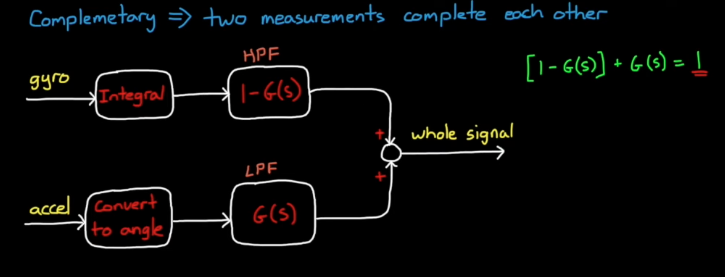 Complemetary ⇒ two measurements complete each other
HPF
[1-G(s)] + G(s) = 1
gyro
Integral
1-G(s)
+
whole signal
LPF
+
accel
Convert
to angle
G(s)